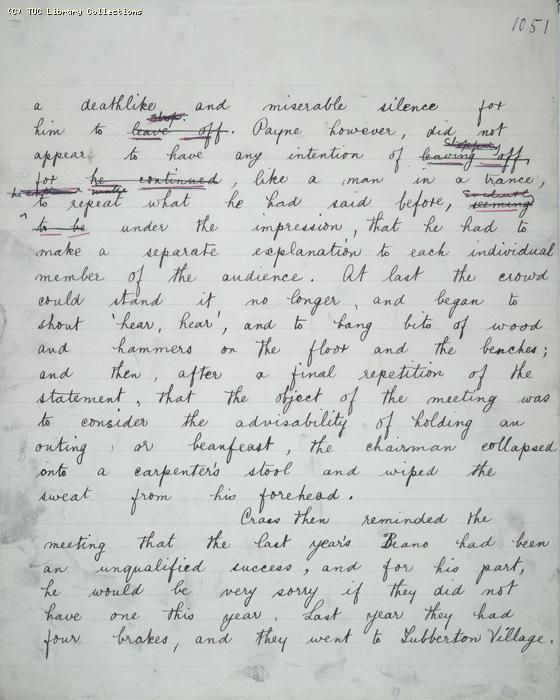 (C) TUC Library Collections
1051
a deathlike and miserable silence for
stop.
him to leave off. Payne however, did not
stopping
appear to have any intention of leaving off
for he continued, like a man in a trance,
to repeat what he had said before, seeming
to be under the impression, that he had to
make a separate explanation to each individual
member of the audience. At last the crowd
could stand it no longer, and began to
shout 'hear, hear', and to bang bits of wood
and hammers on the floor and the benches;
and then, after a final repetition of the
statement, that the object of the meeting was
to consider the advisability of holding an
outing, or beanfeast, the chairman collapsed
onto a carpenter's stool and wiped the
sweat from his forehead.
Crass then reminded the
meeting that the last year's Beano had been
an unqualified success, and for his part,
he would be very sorry if they did not
have one this year. Last year they had
four brakes, and they went to Tubberton Village.